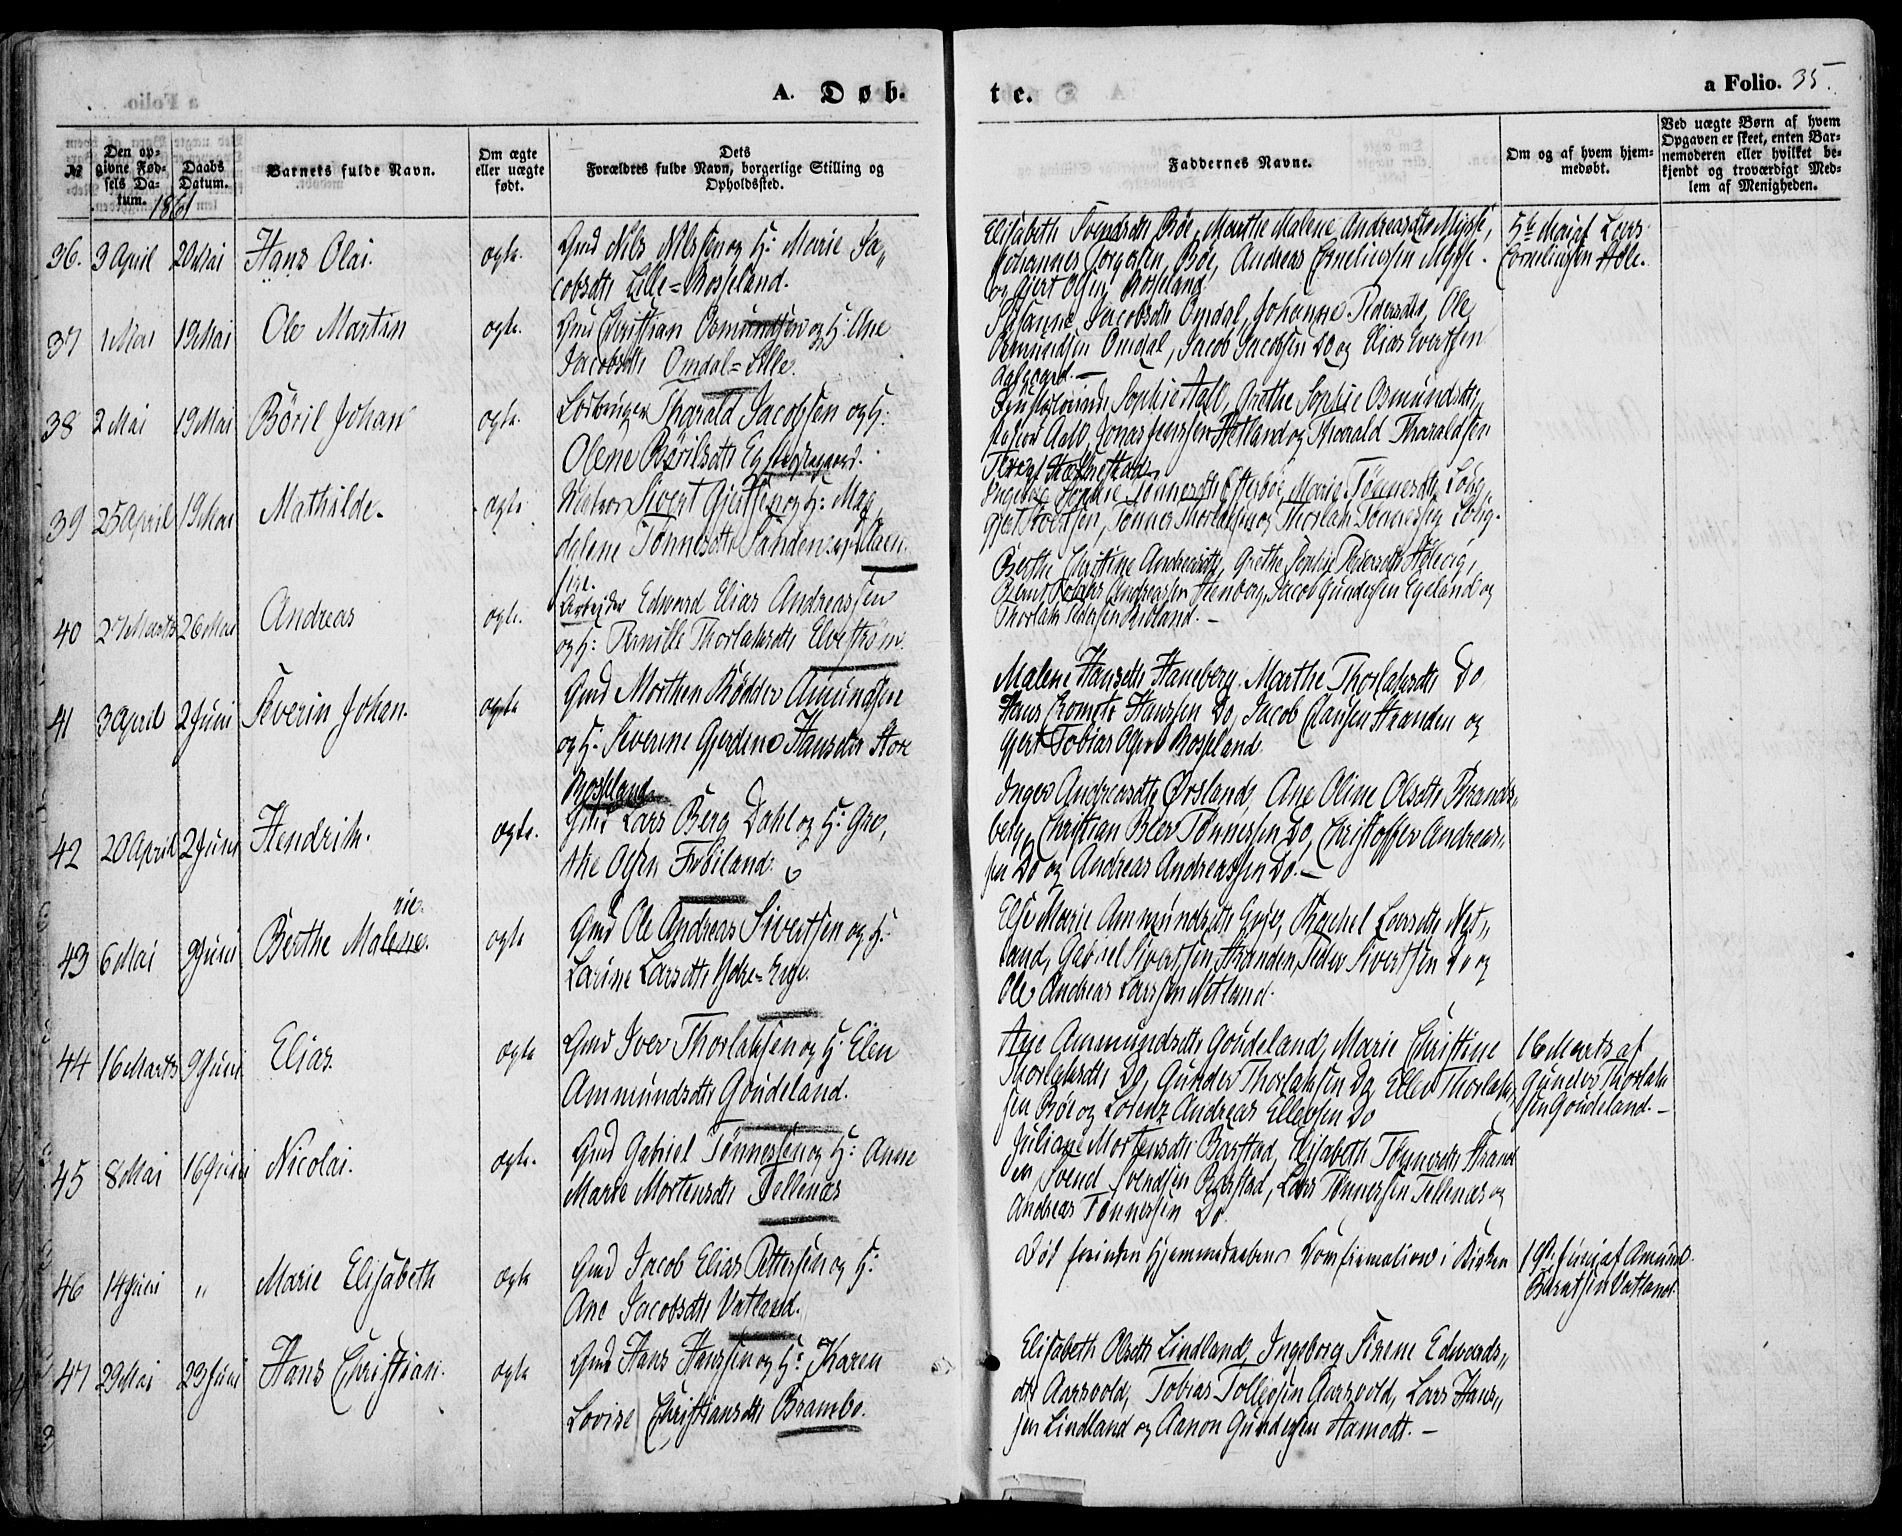 A. Døb-
te.
a Folio. 35.
№
Den op-
givne Fød-
sels Da-
tum.
1861
Daabs
Datum.
Barnets fulde Navn.
Om ægte
eller uægte
født.
Dets
Forældres fulde Navn, borgerlige Stilling og
Opholdssted.
Faddernes Navne.
Om og af hvem hjem-
medøbt.
Ved uægte Børn af hvem
Opgaven er skeet, enten Bar-
nemoderen eller hvilket be-
kjendt og troværdigt Med-
lem af Menigheden.
36. 3 April 20 Mai Hans Olai. ægte. Gmd Nils Nilssen og H: Marie Ja„
cobsdtr Lille=Roseland.
Elisabeth Svendsdtr Bøe, Marthe Malene Andreasdtr
Johannes Bøe, Andreas Corneliussen
og Gjert Olsen Roseland
5te Mai af Lars
Corneliussen
37 1 Mai 19 Mai Ole Martin ægte. Gmd Christian Osmundsen og H: Ane
Jacobsdtr Omdal=Lille.
Susanne Jacobsdtr Omdal, Johanne Pedersdtr, Ole
Osmundsen Omdal, Jacob Jacobsen Do og Elias Evertsen
38 2 Mai 19 Mai Børil Johan ægte. Tharald Jacobsen og H:
Olene Børilsdtr
Sophie Aall, Grethe Sophie Osmundsdtr
Aall, Jonas Jenssen Hetland og Tharald Tharaldsen
39 25 April 19 Mai Mathilde. ægte Sivert og H: Mag„
dalene Tønnesdtr
Sophie Tønnesdtr Marie Tønnesdtr
Tønnes Thorlaksen og Thorlak Tønnessen
40 27 Marts 26 Mai Andreas ægte. Arbeider Edward Elias Andreassen
og H: Pernille Thorlaksdtr Elvestrøm.
Berthe Christine Andreasdtr, Grethe Sophie Pedersdtr
Andreassen Jacob Gundersen Egeland og
Thorlak Pedersen
41 3 April 2 Juni Severin Johan. ægte Gmd Morthen Rødder Amundsen
og H. Severine Gjerdine Hansdtr Store
Roseland.
Malene Hansdtr Haneberg. Marthe Thorlaksdtr Do
Hans Hanssen Do, Jacob Clausen Stranden og
Gjert Tobias Roseland.
42 20 April 2 Juni Hendrik. ægte. Gmd Lars Berg Dahl og H: Gre„
the Olsen Frøiland.
Inger Andreasdtr Ørsland, Ane Oline Olsdtr Brands„
berg, Christian Tønnessen Do, Christoffer Andreas„
sen Do og Andreas Andreassen Do.—
rie.
43 6 Mai 9 Juni Berthe Malene. ægte Gmd Ole Andreas Sivertsen og H:
Larine Larsdtr
Else Marie Ammundsdtr Rachel Larsdtr Net„
land, Gabriel Sivertsen Stranden, Peder Sivertsen Do og
Ole Andreas Larssen Netland.
44 16 Marts 9 Juni Elias. ægte Gmd Iver Thorlaksen og H: Elen
Ammundsdtr Goudeland.
Ane Ammundsdtr Goudeland, Marie Christine
Thorlaksdtr Do, Gunder Thorlaksen Do, Ellev Thorlak„
sen Bøe og Lorenz Andreas Ellevsen Do
16 Marts af
Gunder Thorlak„
sen Goudeland.—
45 8 Mai 16 Juni Nicolai. ægte. Gmd Gabriel Tønnessen og H: Anne
Marie Mortensdtr Tellenæs
Juliane Mortensdtr Barstad, Elisabeth Tønnesdtr Strand
en Svend Svendsen Barstad, Lars Tønnessen Tellenæs og
Andreas Tønnessen Do.
46 14 Juni „ Marie Elisabeth ægte Gmd Jacob Elias Pettersen og H:
Ane Jacobsdtr Vatland.
Død forinden Hjemmedaabens Confirmation i Kirken
19de Juni af Amund
Vatland.
47 29 Mai 23 Juni Hans Christian. ægte Gmd Hans Hanssen og H: Karen
Lovise Christiansdtr Brambo.
Elisabeth Olsdtr Lindland, Ingeborg Sirene Edwards„
dtr Aarsvold, Tobias Tollefsen Aarsvold, Lars Hans„
sen Lindland og Aanon Gundersen Aamodt.—